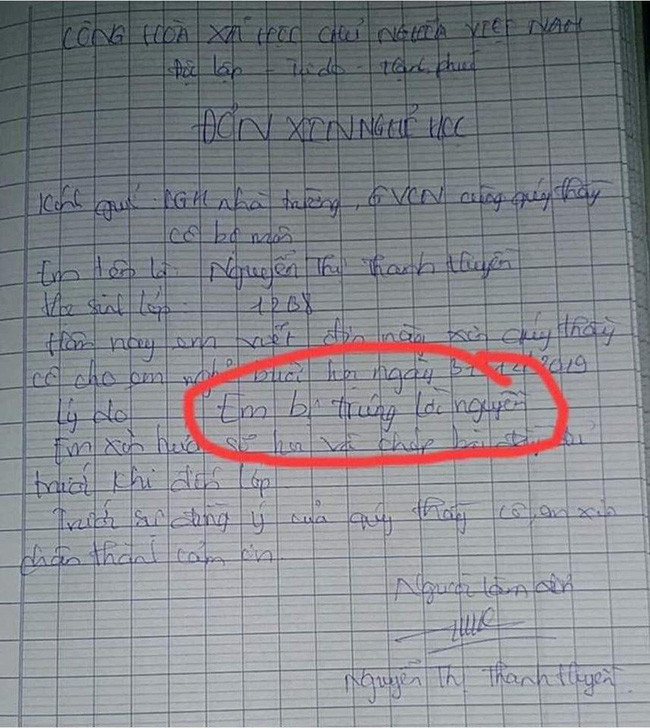 CỘNG HOÀ XÃ HỘI CHỦ NGHĨA VIỆT NAM
Độc lập - Tự do - Hạnh phúc
ĐƠN XIN NGHỈ HỌC
Kính quí BGH nhà trường, GVCN cùng quý thầy
cô bộ môn
Em tên là Nguyễn Thị Thanh Huyền
Học sinh lớp 12B8
Hôm nay em viết đơn này xin quý thầy
cô cho em nghỉ buổi học ngày 2019
Lý do Em bị trúng lời nguyền
Em xin hứa sẽ học và chép bài đầy đủ
trước khi đến lớp
Trước sự đồng ý của quý thầy cô, em xin
chân thành cảm ơn
Người làm đơn
Nguyễn Thị Thanh Huyền